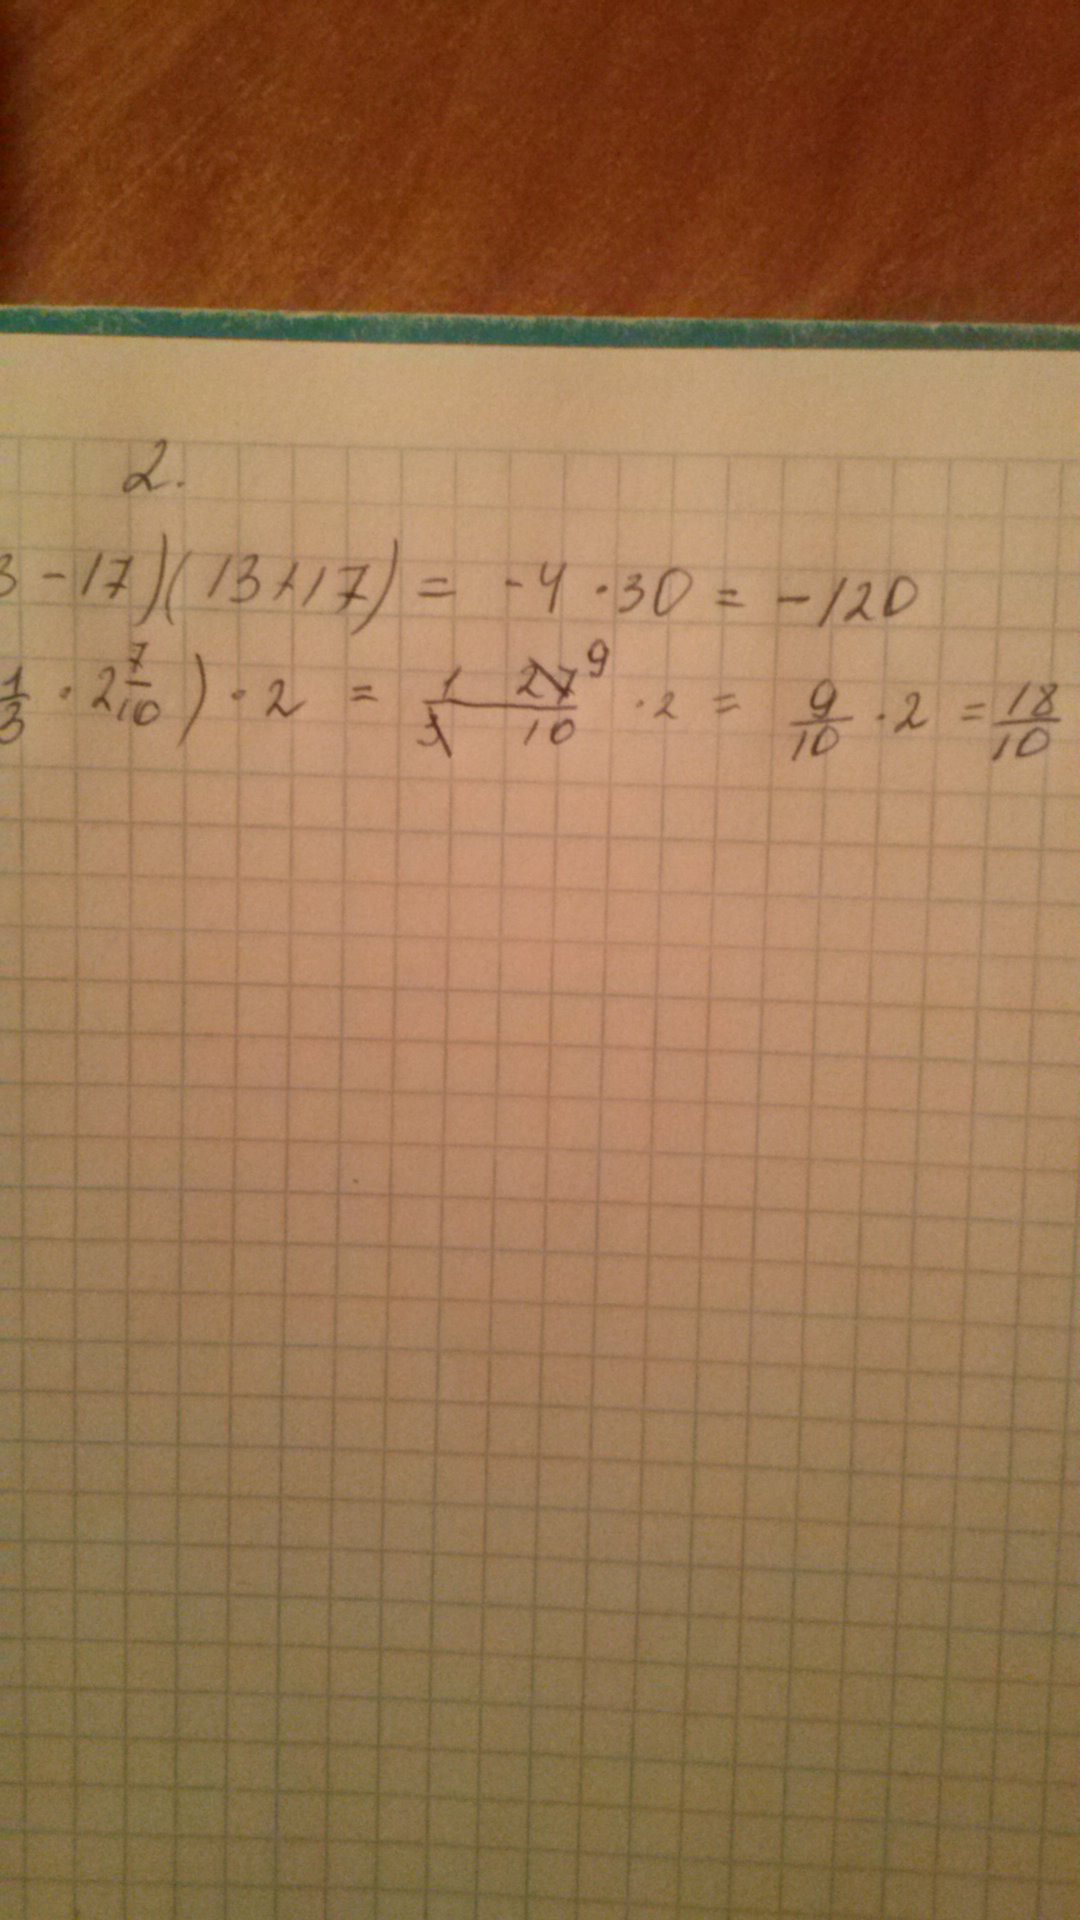 2.
3 - 17)(13+17) = -4 · 30 = -120
1/3 · 2 7/10) · 2 = 1 27 9 / 3 10 · 2 = 9/10 · 2 = 18/10